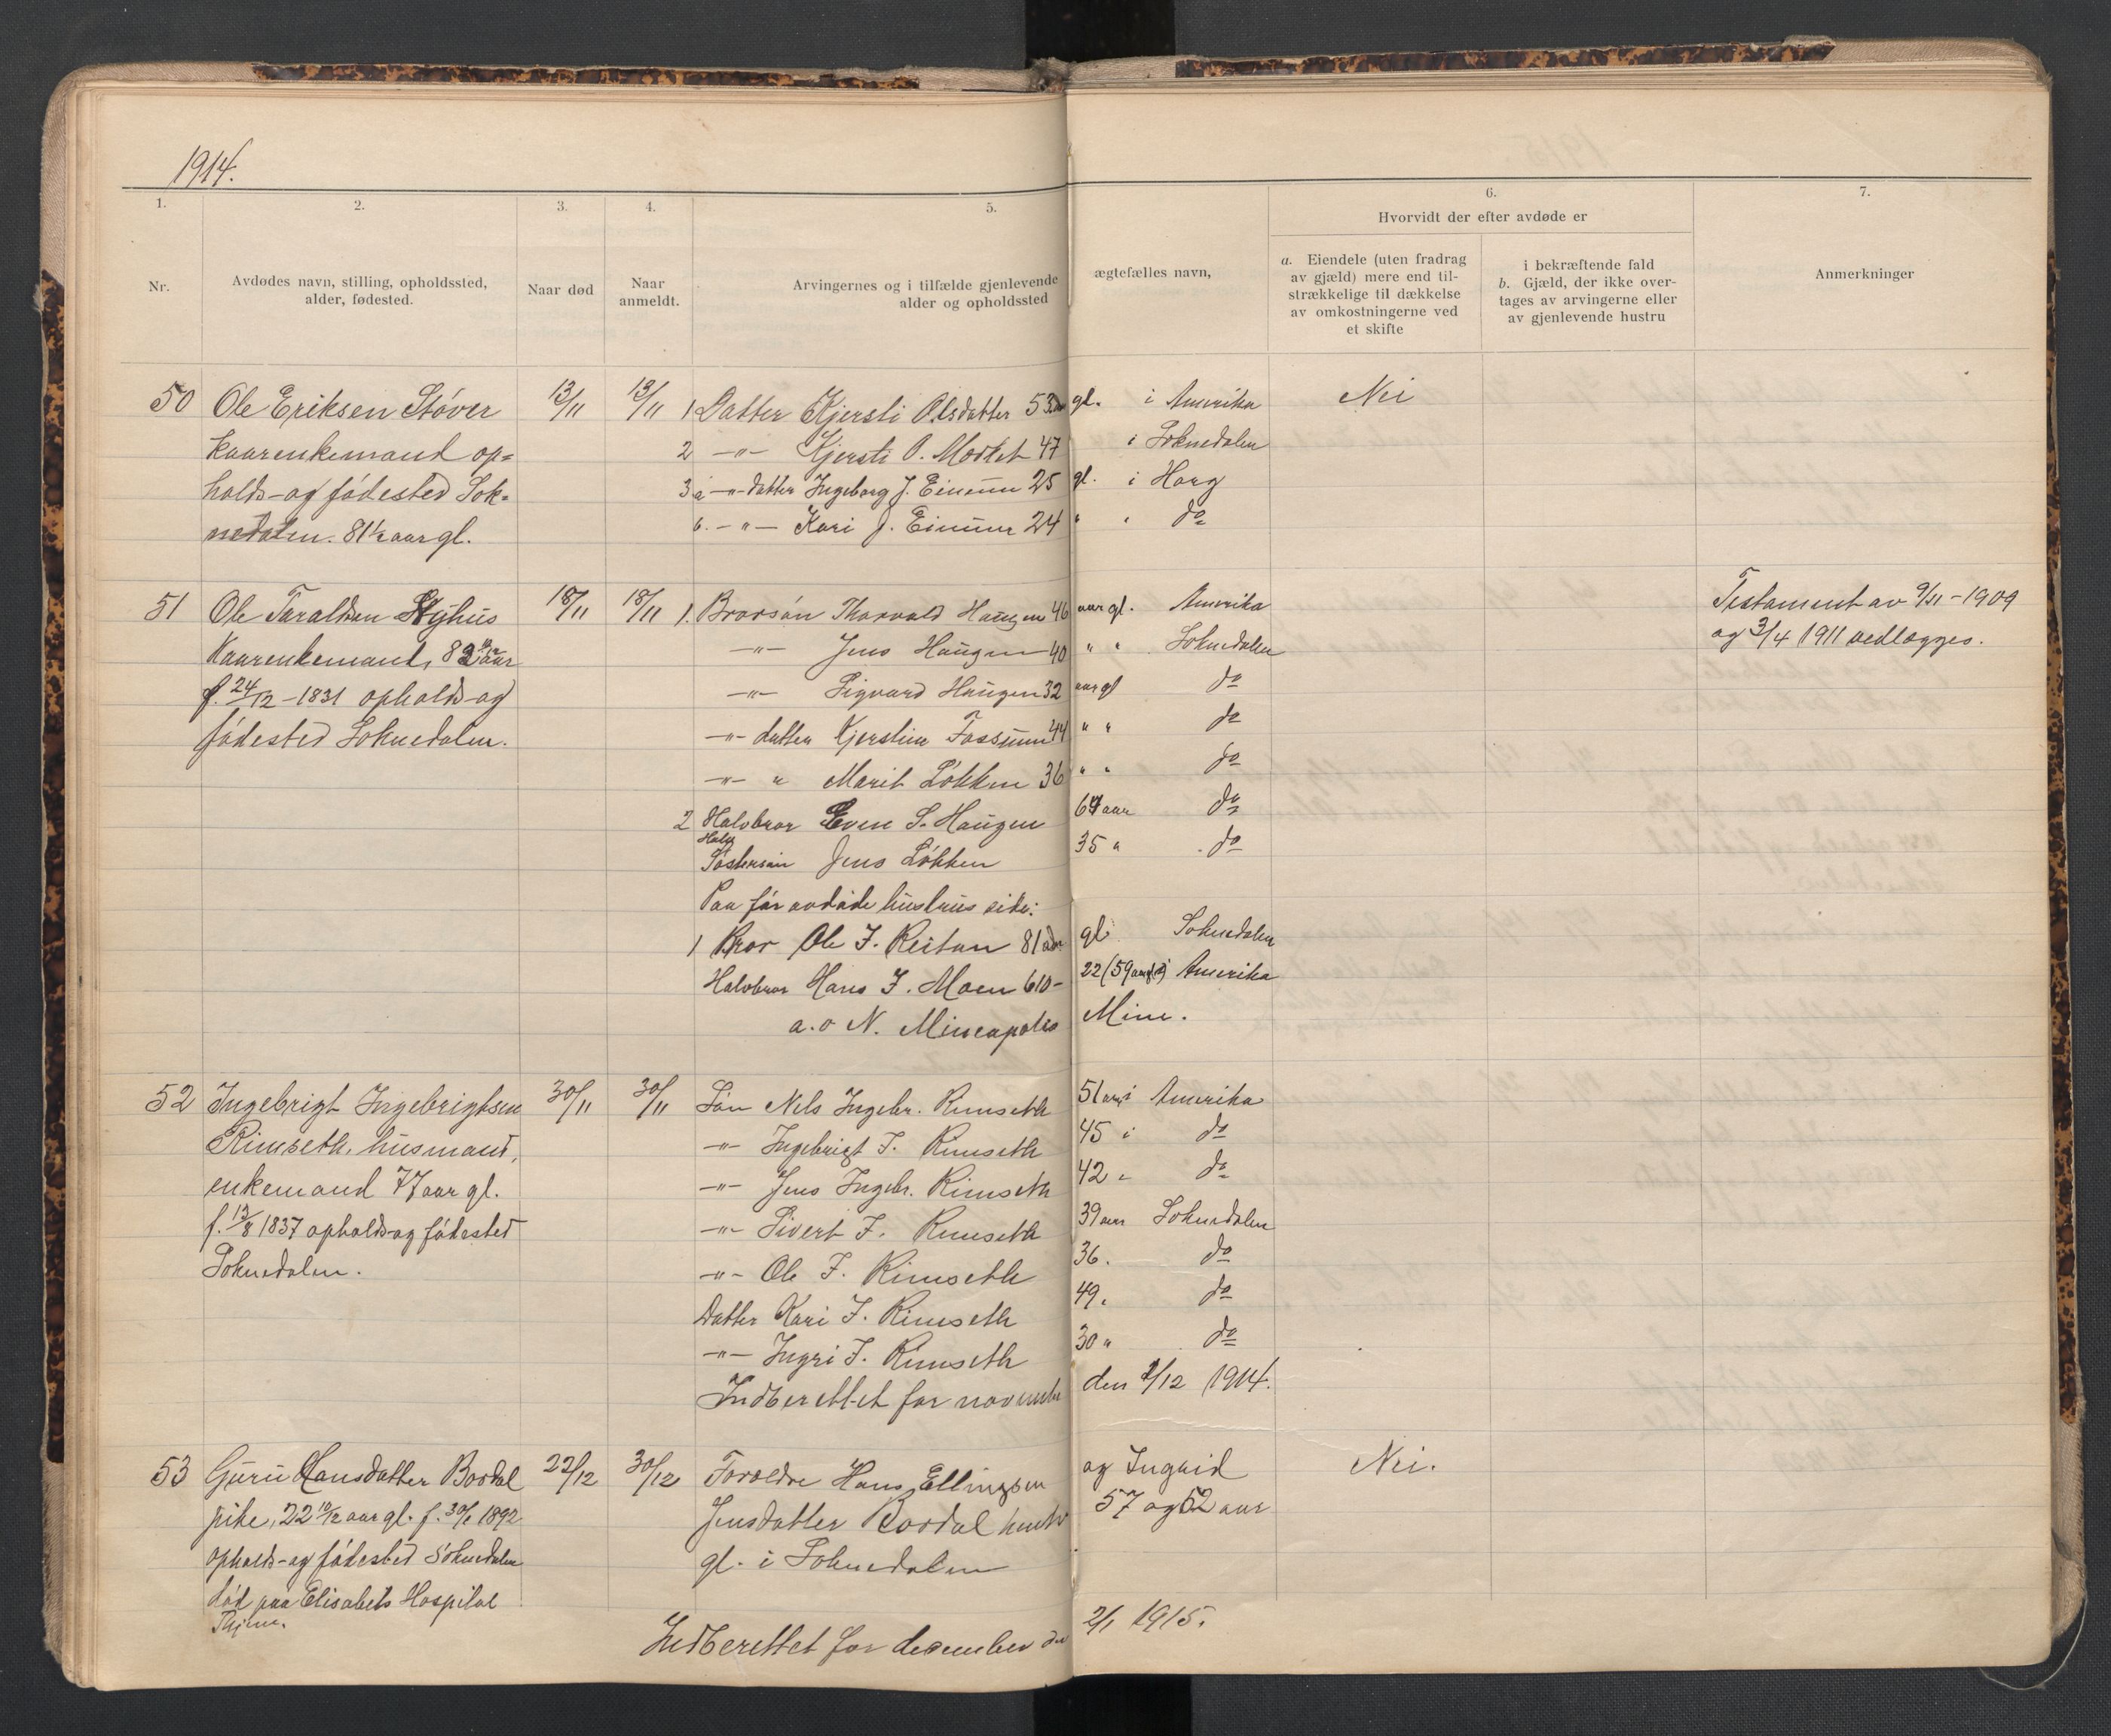 1914.
1. 2. 3. 4. 5. 6. 7.
Hvorvidt der efter avdøde er
Nr.
Avdødes navn, stilling, opholdssted,
alder, fødested.
Naar død
Naar
anmeldt.
Arvingernes og i tilfælde gjenlevende ægtefælles navn,
alder og opholdssted
a. Eiendele (uten fradrag
av gjæld) mere end til-
strækkelige til dækkelse
av omkostningerne ved
et skifte
i bekræftende fald
b. Gjæld, der ikke over-
tages av arvingerne eller
av gjenlevende hustru
Anmerkninger
50 Ole Eriksen Støver 13/11 13/11 1 Datter Kjersti Olsdatter 53 aar gl. i Amerika Nei
kaarenkemand op=
holds-og fødested Sok-
nedalen. 81½ aar gl.
2 -"- Kjersti O. 47 i Soknedalen
3 a -"- datter Ingeborg J. Einum 25 gl. i Horg
b. -"- Kari J. Einum 24 " " do
51 Ole Taraldsen 18/11 18/11 1. Brorsøn Thorvald Haugen 46 aar gl. Amerika
Kaarenkemand, 82 aar
f. 24/12-1831 opholds-og
fødested Soknedalen.
-"- Jens Haugen 40 " " Soknedalen
-"- Sigvard Haugen 32 aar gl do
-"- datter Kjerstine Fossum 44 " " do
-"- " Marit Løkken 36 " " do
2 Halvbror Even S. Haugen 67 aar do
Halv
Søstersøn Jens Løkken 35 " do
Paa før avdøde hustrus side:
1 Bror Ole J. Reitan 81 aar gl. Soknedalen
Halvbror Hans J. Moen 610- 22 (59 aar gl) Amerika
a. o N. Mineapolis Minn.
Testament av 9/11-1909
og 3/4 1911 vedlægges.
52 Ingebrigt Ingebrigtsen 30/11 30/11 Søn Nels Ingebr. Rimseth 51 aar i Amerika
Rimseth, husmand,
enkemand 77 aar gl.
f. 13/8 1837 opholds-og fødested
Soknedalen.
-"- Ingebrigt I. Rimseth 45 i do
-"- Jens Ingebr. Rimseth 42 " do
-"- Sivert I. Rimseth 39 aar Soknedalen
-"- Ole I. Rimseth 36. do
Datter Kari I. Rimseth 49. do
-"- Ingri I. Rimseth 30 " do
Indberettet for november den 1/12 1914.
53 Guru Hansdatter Bordal 22/12 30/12 Forældre Hans Ellingsen og Ingrid Nei.
pike, 22 10/12 aar gl. f. 30/1 1892
opholds-og fødested Soknedalen
død paa Elisabets Hospital
Thjem.
Jensdatter Bordal 57 og 52 aar
gl. i Soknedalen
Indberettet for december den 2/1 1915.